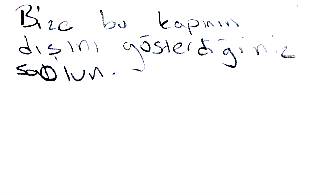 Bize bu kapının
dışını gösterdiğiniz
saolun.